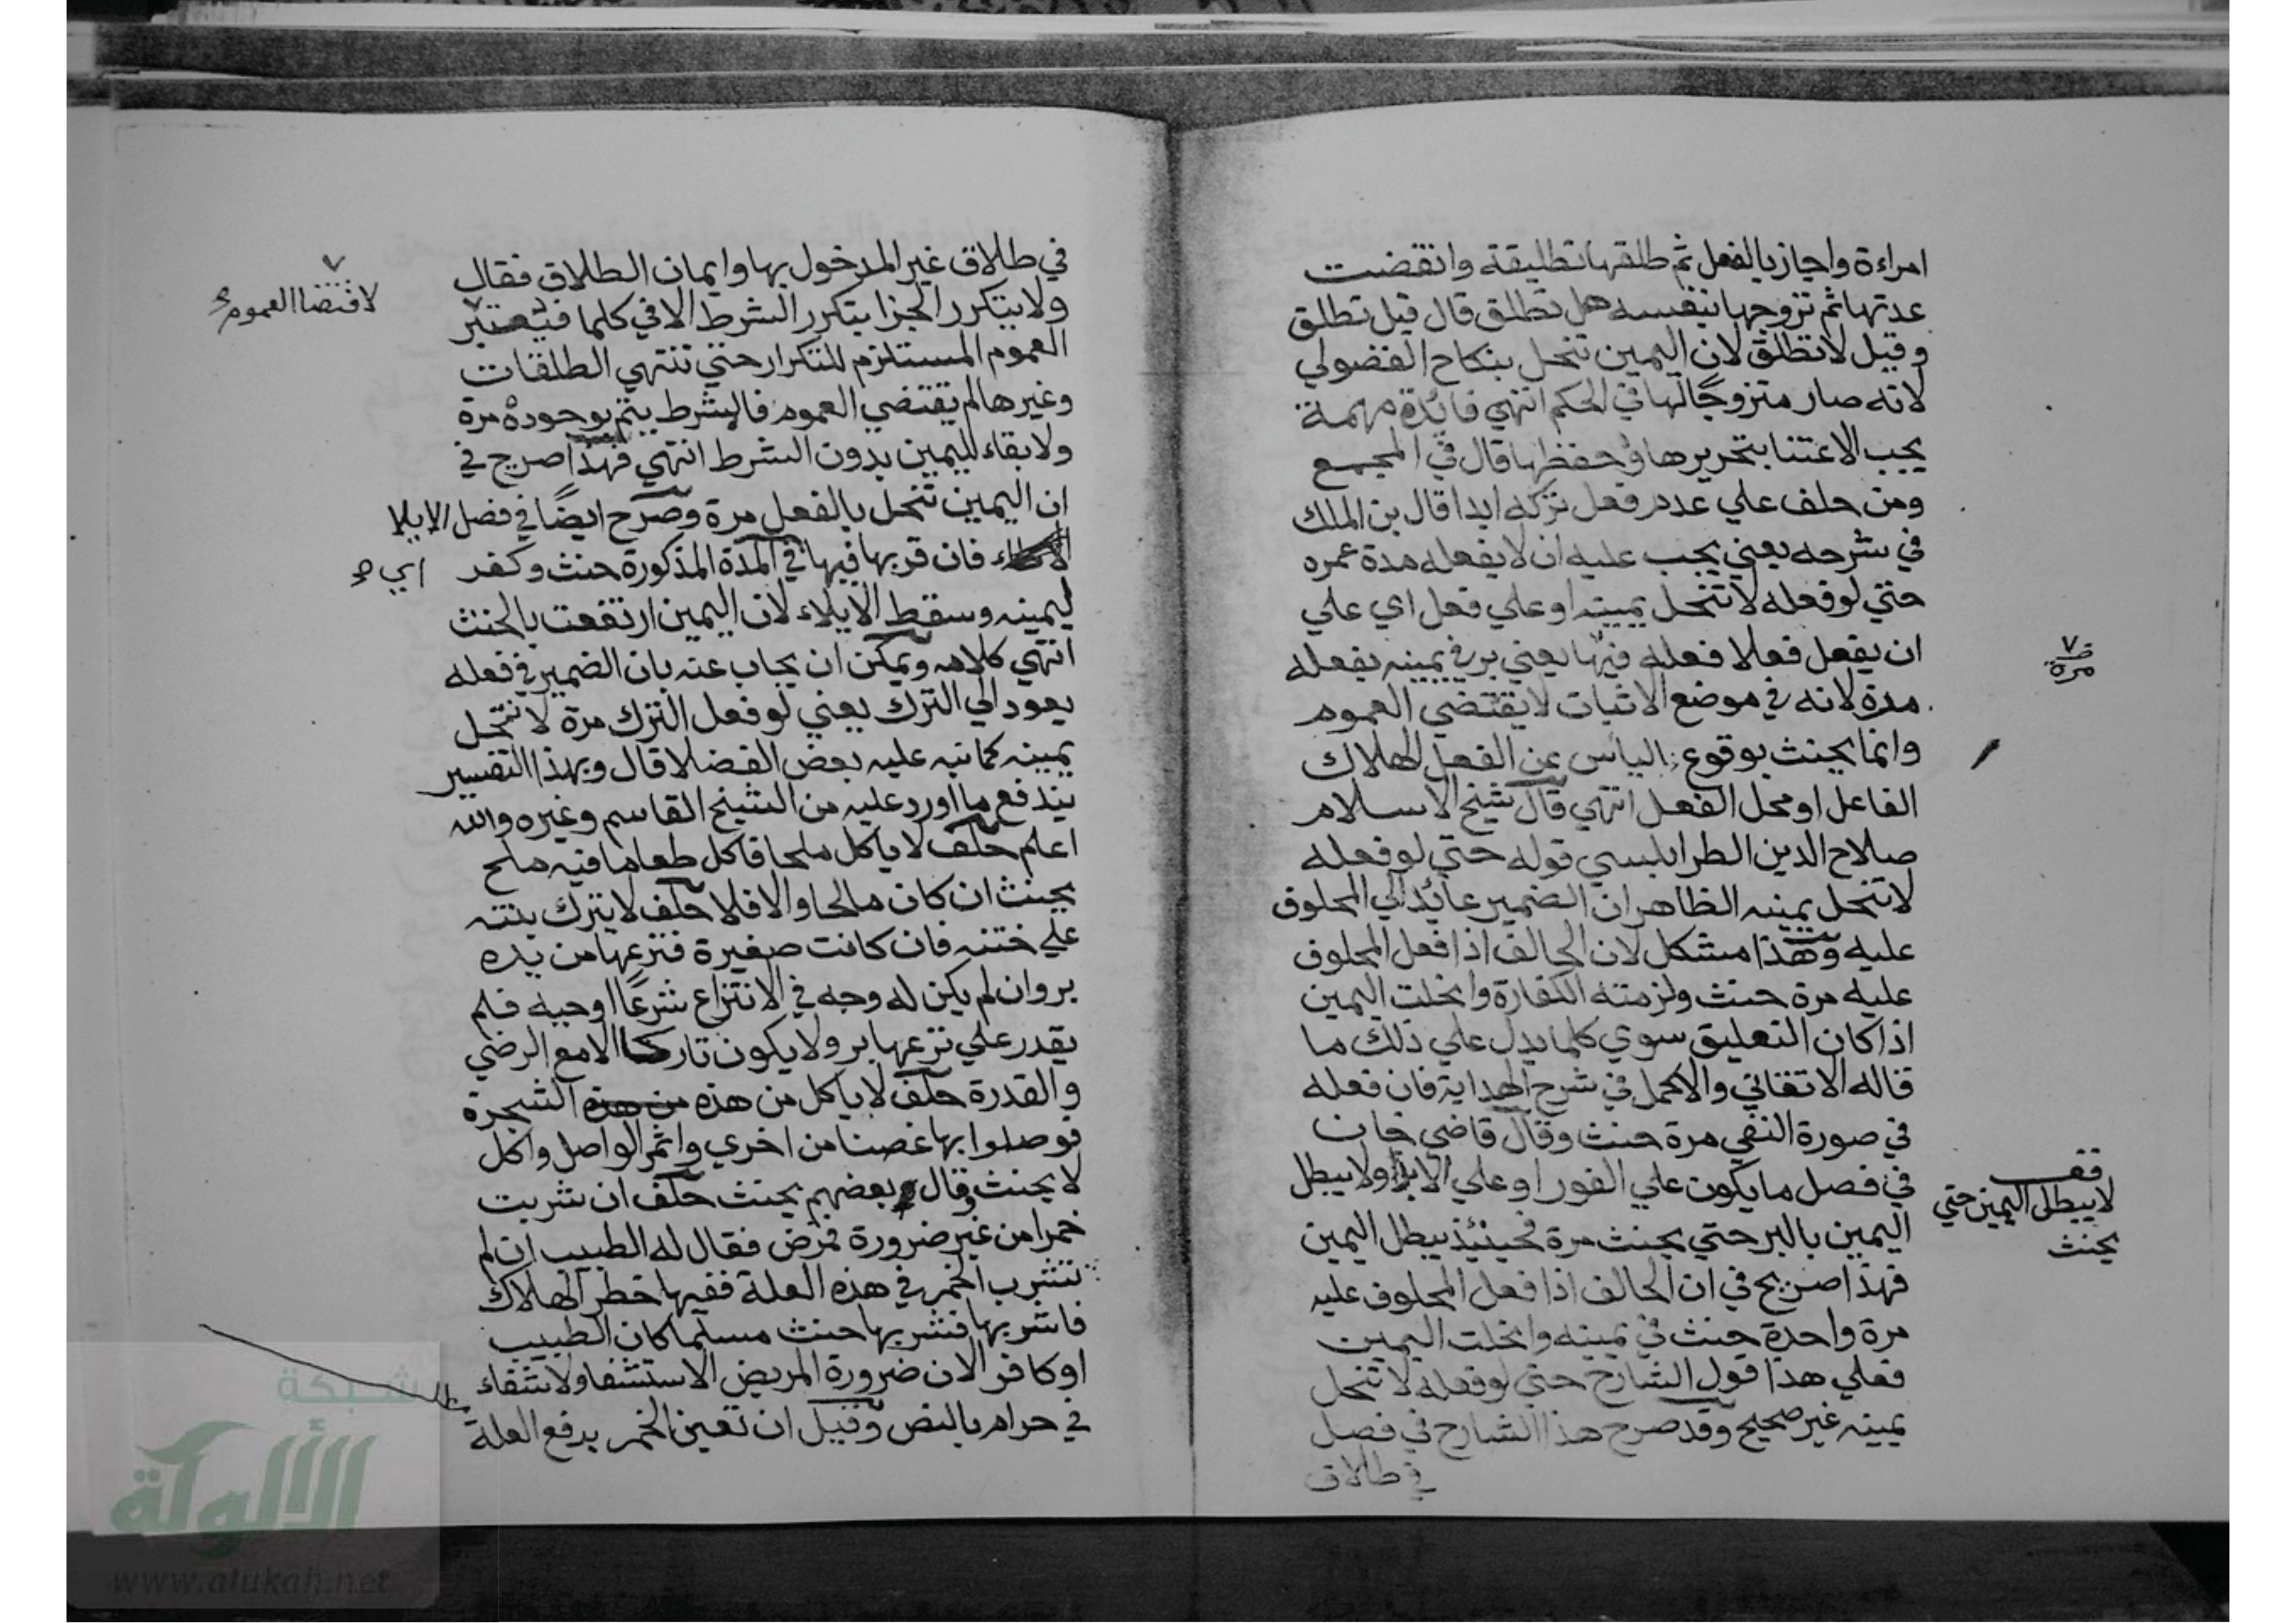 امراءة واجاز بالفعل ثم طلقها تطليقة وانقضت
عدتها ثم تزوجها بنفسه هل تطلق قال قيل تطلق
وقيل لا تطلق لان اليمين تنحل بنكاح الفضولي
لانه صار متزوجًا لها في الحكم انتهي فائدة مهمة
يجب الاعتنا بتحريرها وحفظها قال في المجمع
ومن حلف علي عدم فعل تركه ابدا قال بن الملك
في شرحه يعني يجب عليه ان لا يفعله مدة عمره
حتي لو فعله لا تنحل يمينه او علي فعل اي علي
ان يفعل فعلا فعله فيها يعني بر في يمينه بفعله
مدة لانه في موضع الاثبات لا يقتضي العموم
وانما يحنث بوقوع الياس عن الفعل لهلاك
الفاعل او محل الفعل انتهي قال شيخ الاسلام
صلاح الدين الطرابلسي قوله حتي لو فعله
لا تنحل يمينه الظاهر ان الضمير عائد الي المحلوف
عليه وهذا مشكل لان الحالف اذا فعل المحلوف
عليه مرة حنث ولزمته الكفارة وانحلت اليمين
اذا كان التعليق سوي كلما يدل علي ذلك ما
قاله الاتقاني والاكمل في شرح الهداية فان فعله
في صورة النفي مرة حنث وقال قاضي خان
في فصل ما يكون علي الفور او علي الابد ولا يبطل
اليمين بالبر حتي يحنث مرة فحينئذ يبطل اليمين
فهذا صريح في ان الحالف اذا فعل المحلوف عليه
مرة واحدة حنث في يمينه وانحلت اليمين
فعلي هذا قول الشارح حتي لو فعله لا تنحل
يمينه غير صحيح وقد صرح هذا الشارح في فصل
في طلاق
مرة
قف
لا يبطل اليمين حتي
يحنث
في طلاق غير المدخول بها وايمان الطلاق فقال
ولا يتكرر الجزا بتكرر الشرط الا في كلما
العموم المستلزم للتكرار حتي تنتهي الطلقات
وغيرها لم يقتضي العموم فالشرط يتم بوجوده مرة
ولا بقاء لليمين بدون الشرط انتهي فهذا صريح في
ان اليمين تنحل بالفعل مرة وصرح ايضًا في فصل الايلا
فان قربها فيها في المدة المذكورة حنث وكفر
ليمينه وسقط الايلاء لان اليمين ارتفعت بالحنث
انتهي كلامه ويمكن ان يجاب عنه بان الضمير في فعله
يعود الي الترك يعني لو فعل الترك مرة لا تنحل
يمينه كما نبه عليه بعض الفضلا قال وبهذا التفسير
يندفع ما اورد عليه من الشيخ القاسم وغيره والله
اعلم حلف لا ياكل ملحا فاكل طعاما فيه ملح
يحنث ان كان مالحا والا فلا حلف لا يترك بنته
علي ختنه فان كانت صغيرة فنزعها من يده
بر وان لم يكن له وجه في الانتزاع شرعًا او حيله فلم
يقدر علي نزعها بر ولا يكون تاركا الا مع الرضي
والقدرة حلف لا ياكل من هذه من هذه الشجرة
فوصلوا بها غصنا من اخري واثمر الواصل واكل
لا يحنث وقال بعضهم يحنث حلف ان شربت
خمرا من غير ضرورة فمرض فقال له الطبيب ان لم
تشرب الخمر في هذه العلة ففيها خطر الهلاك
فاشربها فشربها حنث مسلما كان الطبيب
او كافر الان ضرورة المريض الاستشفا ولا شفاء
في حرام بالنص وقيل ان تعين الخمر يدفع العلة
لاقتضا العموم
اي
شبكة
الألوكة
www.alukah.net